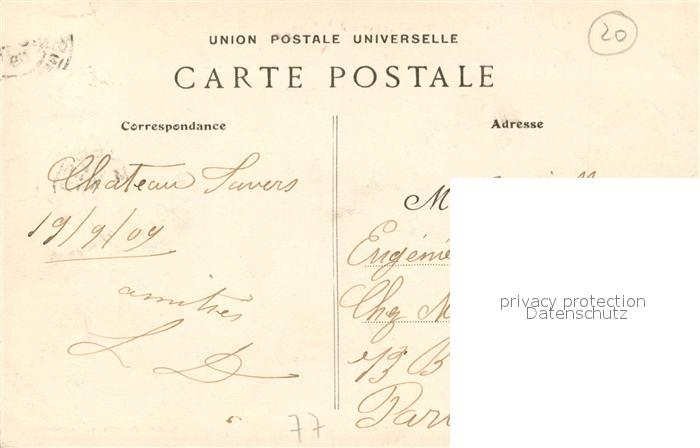 20
UNION POSTALE UNIVERSELLE
CARTE POSTALE
Correspondance
Adresse
Chateau Savers
19/9/09
amitiés
L D
M
Eugénie
Chez M
73 B
Par
privacy protection
Datenschutz
77